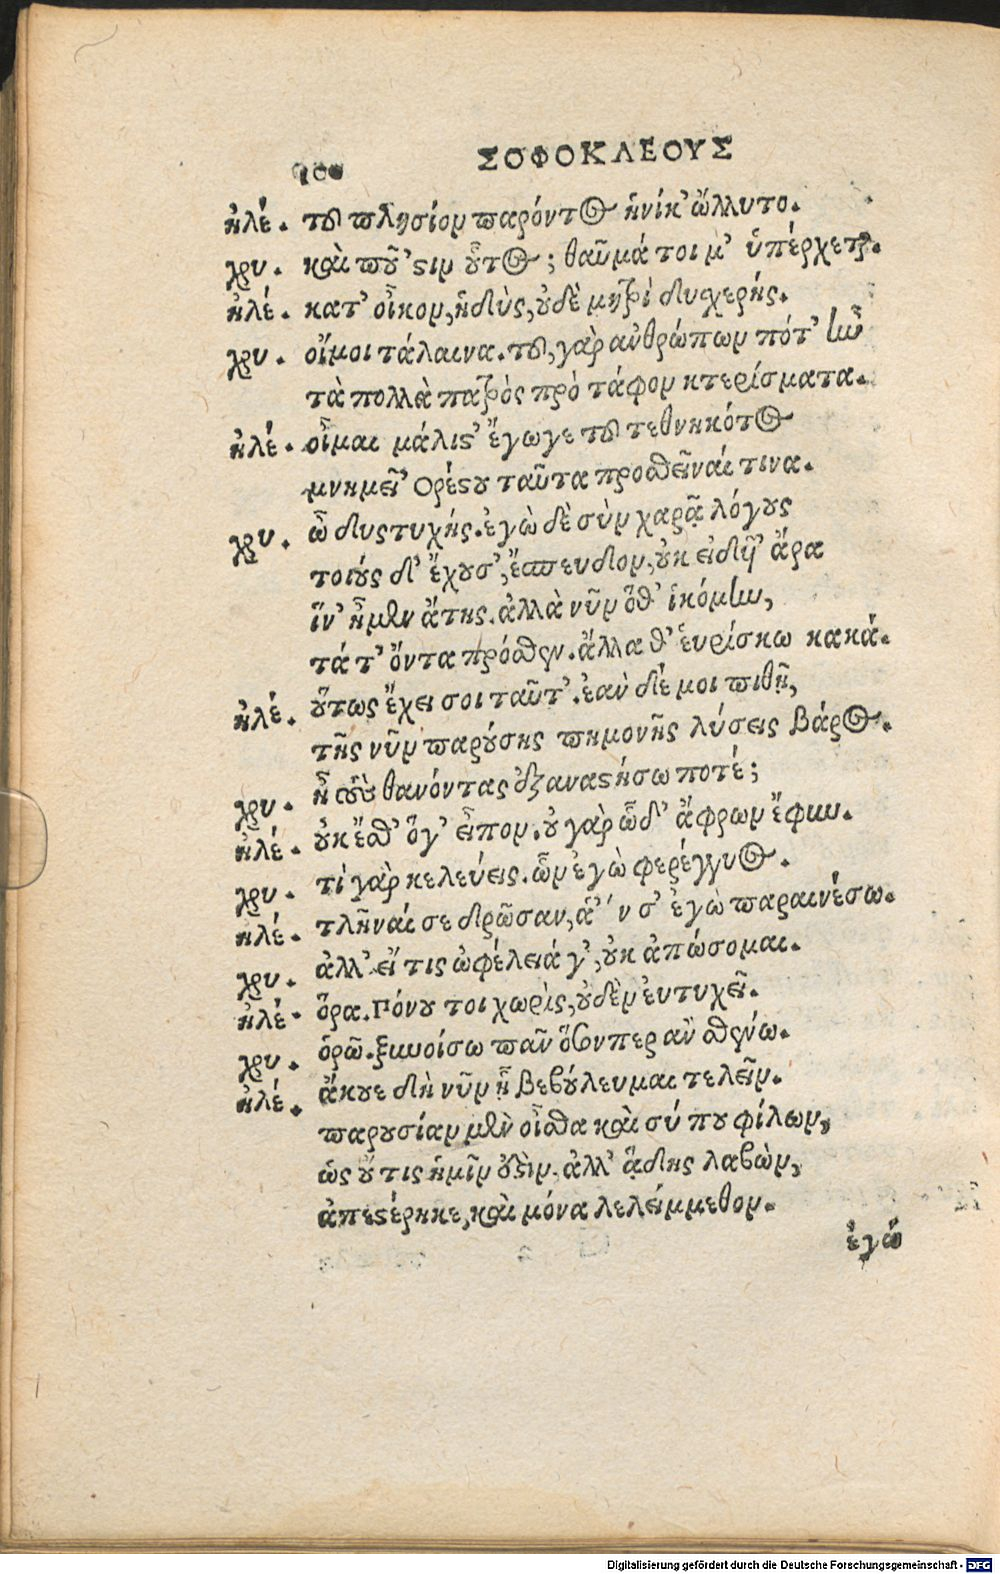 100 ΣΟΦΟΚΛΕΟΥΣ
ἠλέ. τοῦ πλησίον παρόντος ἡνίκ' ὤλλυτο.
χρυ. καὶ ποῦ 'στιν οὗτος; θαῦμά τοι μ' ὑπέρχεται.
ἠλέ. κατ' οἶκον, ἡδὺς, οὐδὲ μητρὶ δυσχερής.
χρυ. οἴμοι τάλαινα. τοῦ, γὰρ ἀνθρώπων πότ' ἦν
τὰ πολλὰ πατρὸς πρὸ τάφον κτερίσματα.
ἠλέ. οἶμαι μάλιστ' ἔγωγε τοῦ τεθνηκότος
μνημεῖ' Ορέστου ταῦτα προσθεῖναί τινα.
χρυ. ὦ δυστυχής. ἐγὼ δὲ σὺν χαρᾷ λόγους
τοιούς δ' ἔχουσ', ἔσπευδον, οὐκ εἰδυῖ' ἄρα
ἵν' ἦμεν ἄτης. ἀλλὰ νῦν ὅθ' ἱκόμην,
τά τ' ὄντα πρόσθεν. ἄλλα θ' εὑρίσκω κακά.
ἠλέ. οὕτως ἔχει σοι ταῦτ'. ἐὰν δέ μοι πιθῇ,
τῆς νῦν παρούσης πημονῆς λύσεις βάρος.
χρυ. ἦ τοὺς θανόντας ἐξαναστήσω ποτέ;
ἠλέ. οὐκ ἔσθ' ὅγ' εἶπον. οὐ γὰρ ὧδ' ἄφρων ἔφυν.
χρυ. τί γὰρ κελεύεις. ὧν ἐγὼ φερέγγυος.
ἠλέ. τλῆναί σε δρῶσαν, ἅ' 'ν σ' ἐγὼ παραινέσω.
χρυ. ἀλλ' εἴ τις ὠφέλειά γ', οὐκ ἀπώσομαι.
ἠλέ. ὅρα. Πόνου τοι χωρὶς, οὐδὲν εὐτυχεῖ.
χρυ. ὁρῶ. ξυνοίσω πᾶν ὅσονπερ ἂν σθένω.
ἠλέ. ἄκουε δὴ νῦν ᾗ βεβούλευμαι τελεῖν.
παρουσίαν μὲν οἶσθα καὶ σύ που φίλων,
ὡς οὔτις ἡμῖν ἐστιν. ἀλλ' ᾅδης λαβὼν,
ἀπεστέρηκε, καὶ μόνα λελείμμεθον.
ἐγὼ
Digitalisierung gefördert durch die Deutsche Forschungsgemeinschaft - DFG